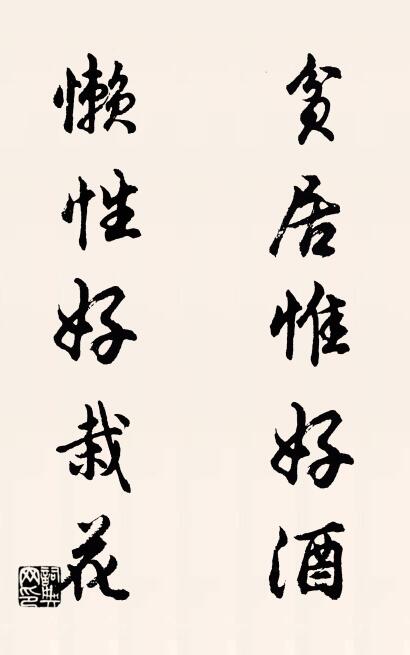 贫居惟好酒
懒性好栽花